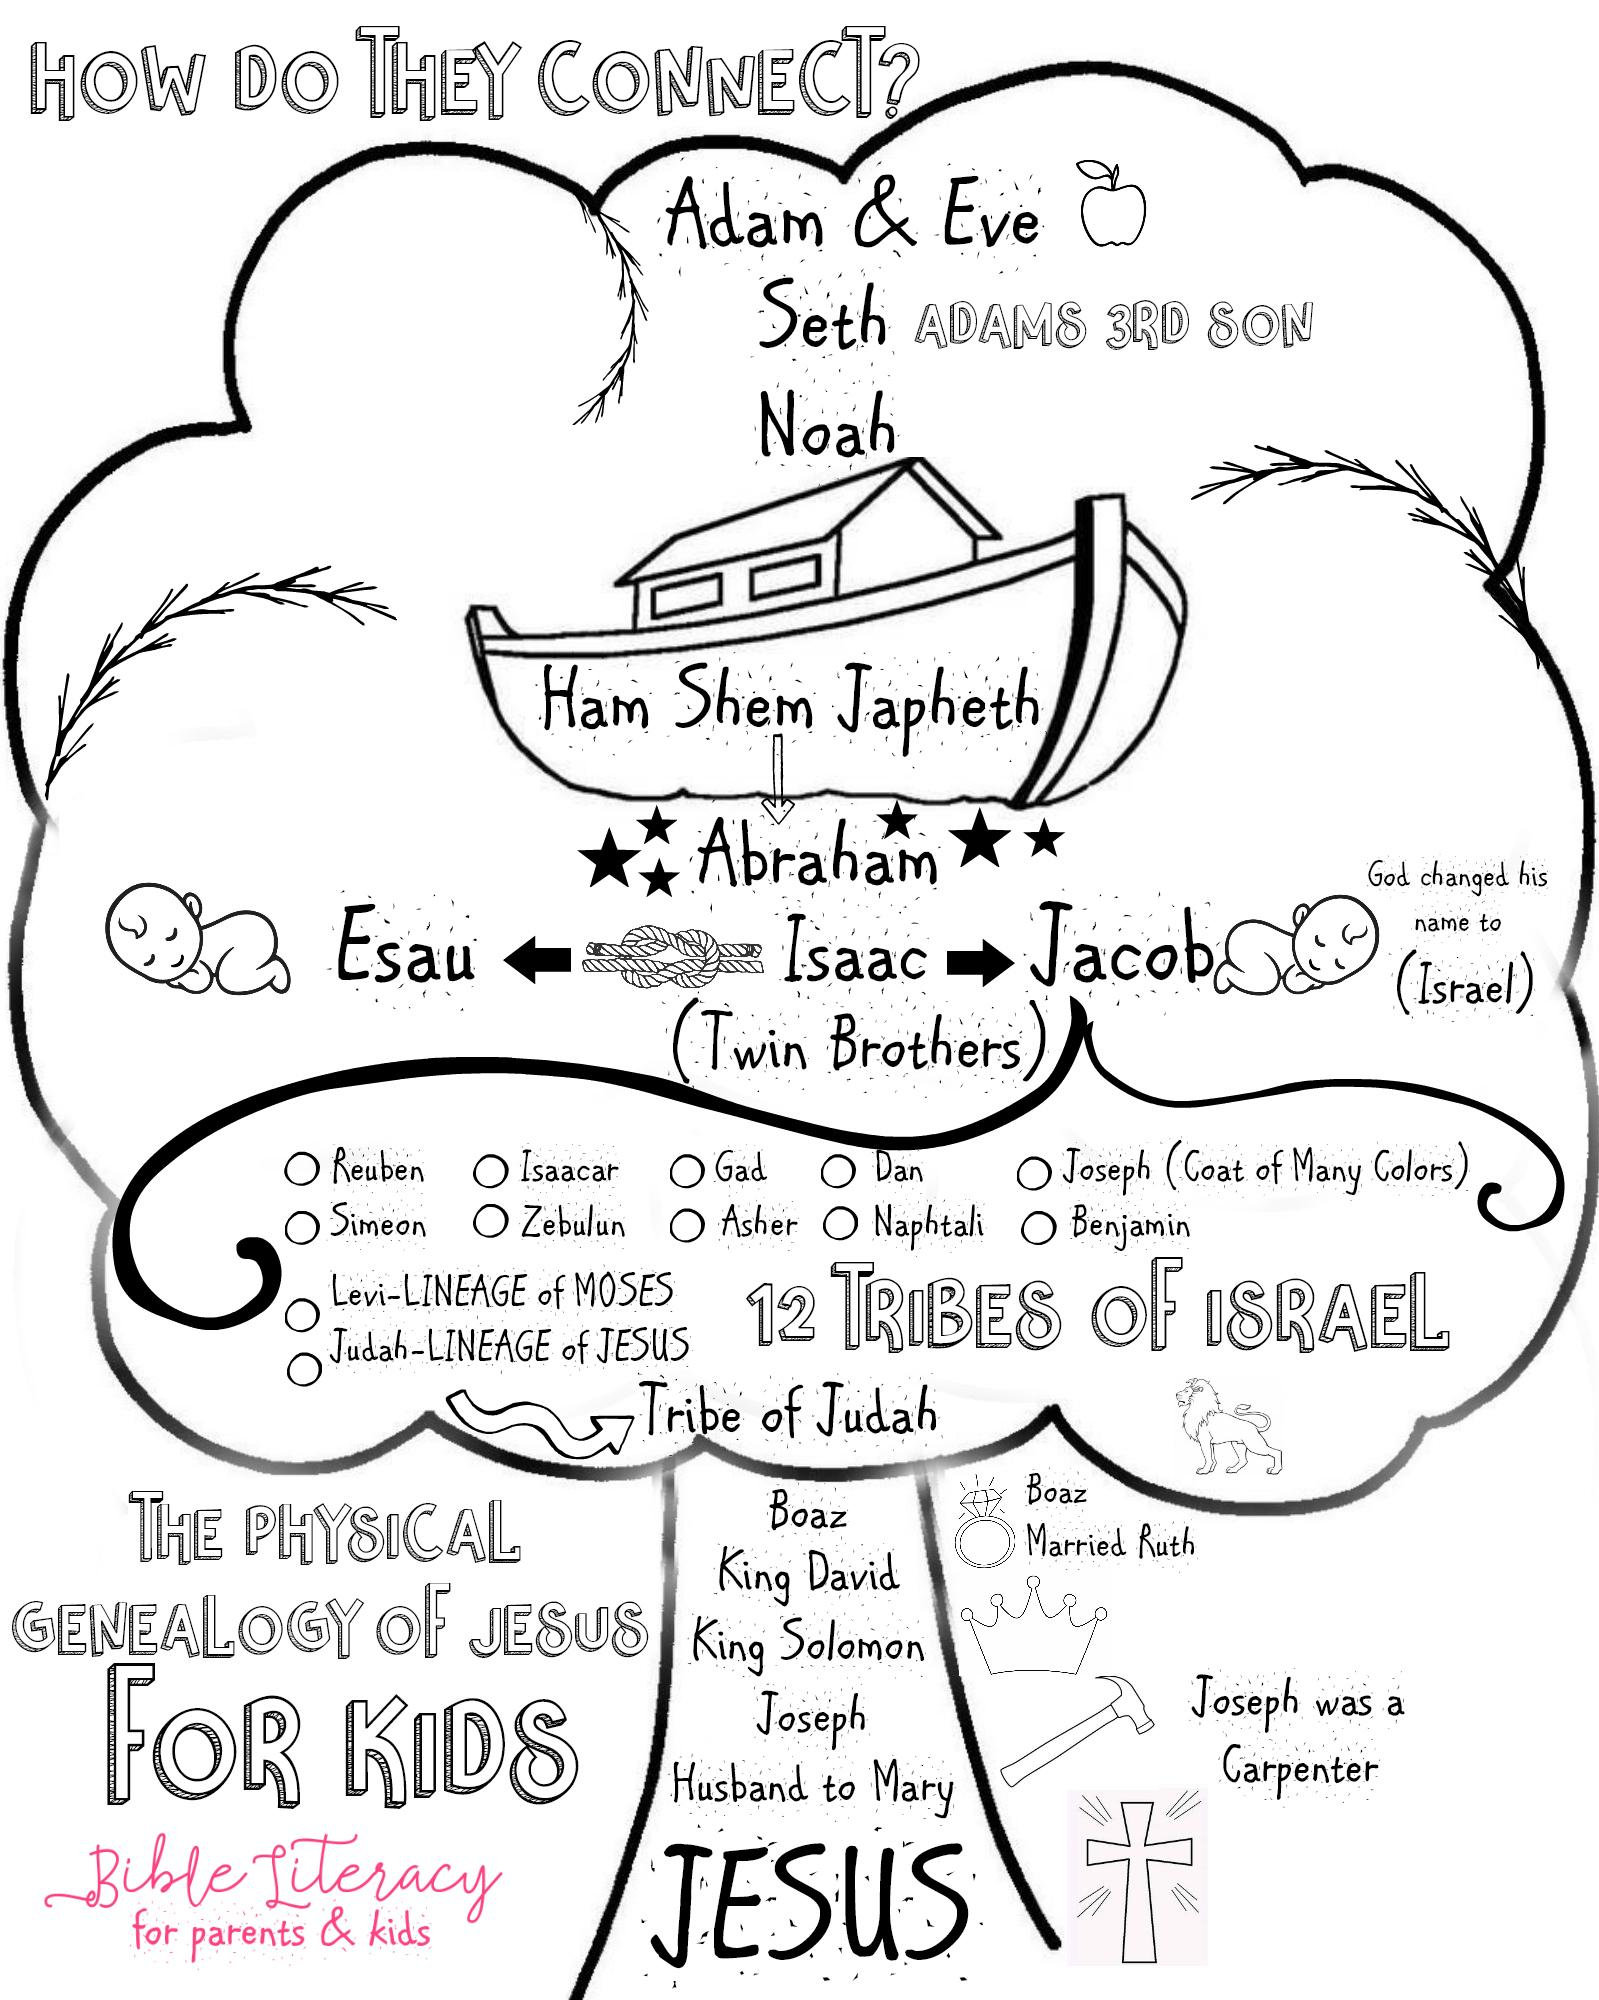 HOW DO THEY CONNECT?
Adam & Eve
Seth ADAMS 3RD SON
Noah
Ham Shem Japheth
Abraham
God changed his
name to
(Israel)
Esau Isaac Jacob
(Twin Brothers)
Reuben Isaacar Gad Dan Joseph (Coat of Many Colors)
Simeon Zebulun Asher Naphtali Benjamin
Levi-LINEAGE of MOSES
Judah-LINEAGE of JESUS
12 TRIBES OF ISRAEL
Tribe of Judah
Boaz
King David
King Solomon
Joseph
Husband to Mary
JESUS
Boaz
Married Ruth
Joseph was a
Carpenter
THE PHYSICAL
GENEALOGY OF JESUS
FOR KIDS
Bible Literacy
for parents & kids